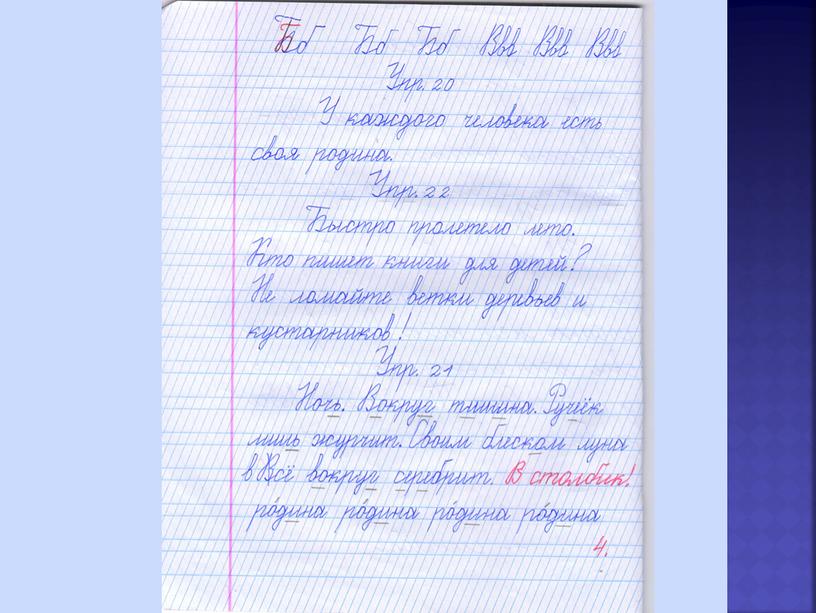 Бб Бб Бб Ввв Ввв Ввв
Упр. 20
У каждого человека есть
своя родина.
Упр. 22
Быстро пролетело лето.
Кто пишет книги для детей?
Не ломайте ветки деревьев и
кустарников!
Упр. 21
Ночь. Вокруг тишина. Ручеёк
лишь журчит. Своим блеском луна
в Всё вокруг серебрит. В столбик!
ро́дина ро́дина ро́дина ро́дина
4.